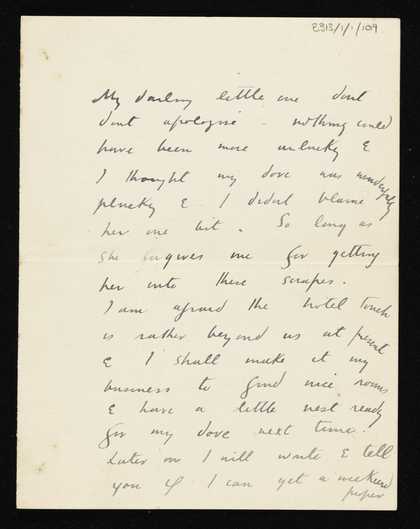 2313/1/1/109
My darling little one dont
dont apologise - nothing could
have been more unlucky &
I thought my dove was wonderfully
plucky & I didnt blame
her one bit. So long as
she forgives me for getting
her into these scrapes.
I am afraid the hotel touch
is rather beyond us at present
& I shall make it my
business to find nice rooms
& have a little nest ready
for my dove next time.
Later on I will write & tell
you if I can get a weekend
paper